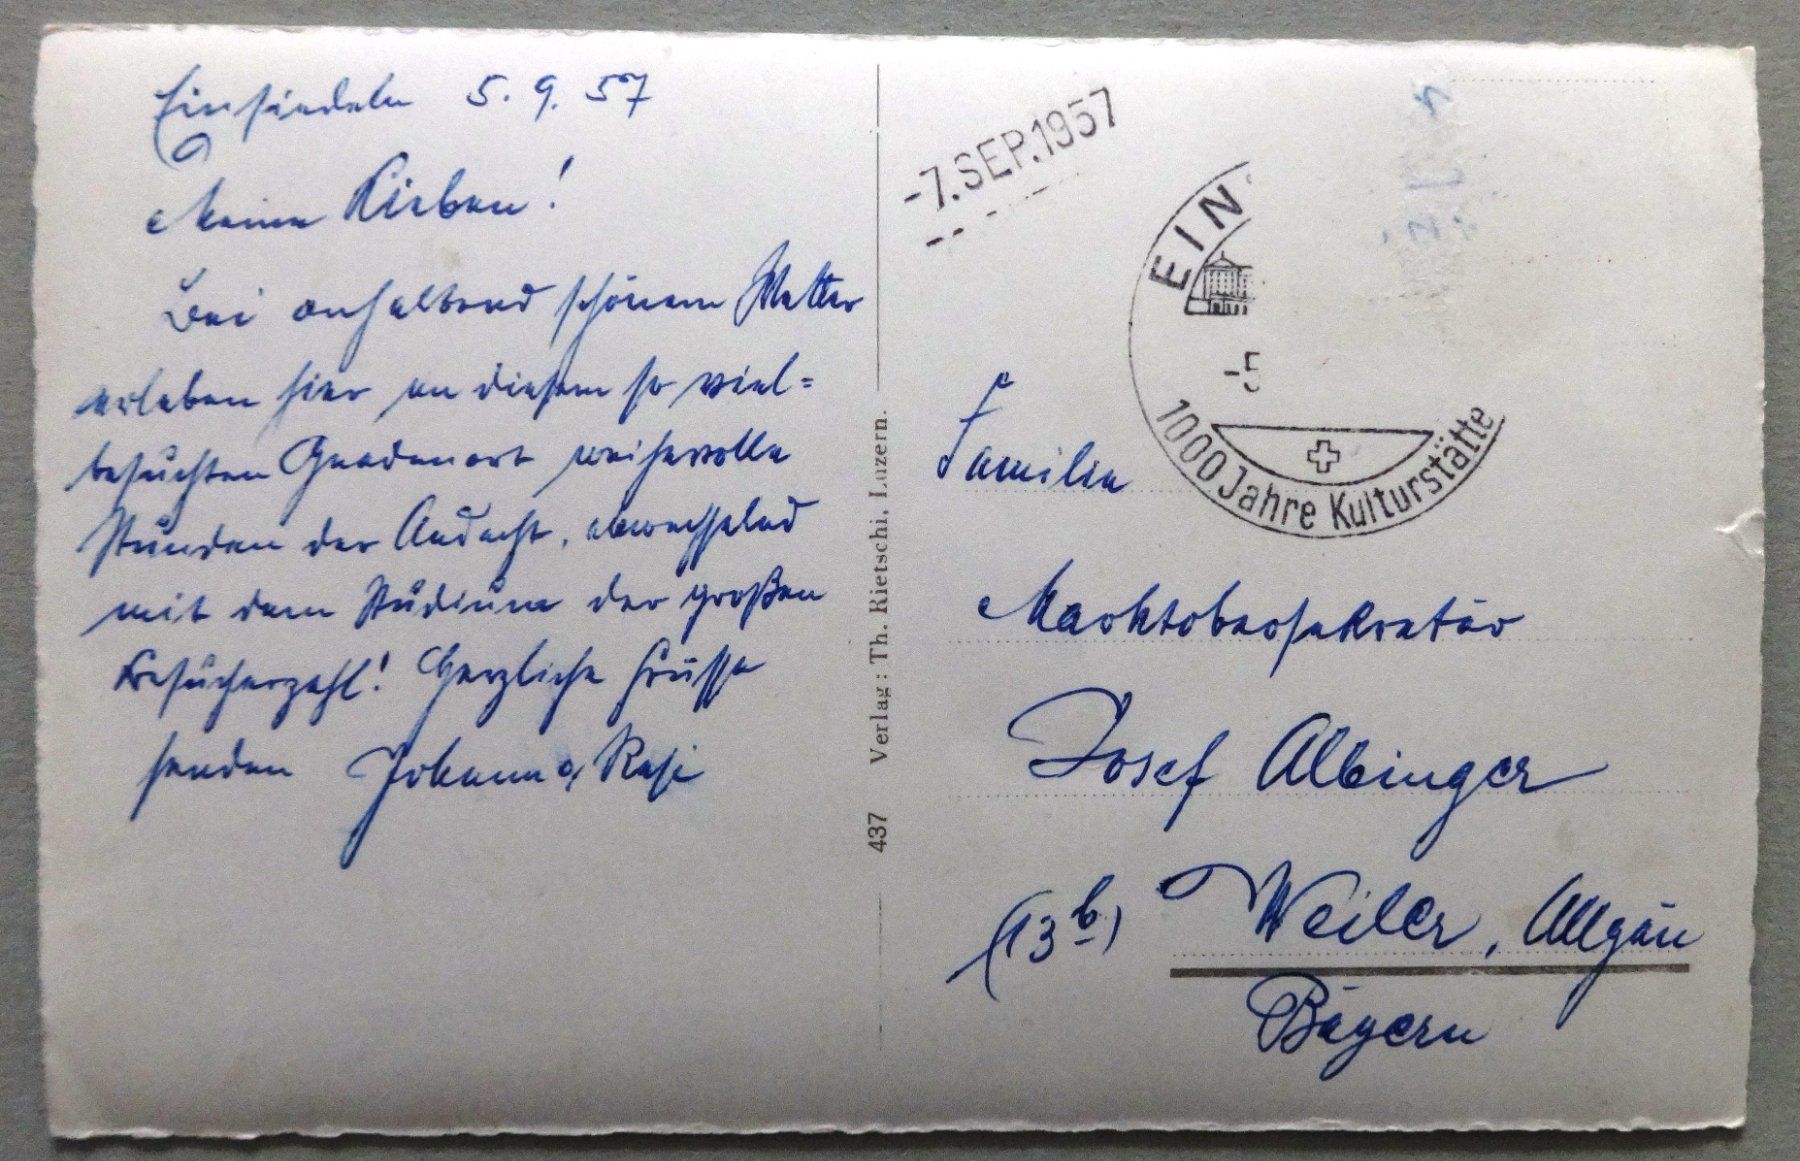 Einsiedeln 5. 9. 57
Meine Lieben!
Bei anhaltend schönem Wetter
erleben hier an diesem so viel=
besuchten Gnadenort weihevolle
Stunden der Andacht, abwechselnd
mit dem Studium der großen
Besucherzahl! Herzliche Grüsse
senden Johann & Resi
437 Verlag: Th. Rietschi, Luzern.
-7.SEP.1957
EIN
-5
1000 Jahre Kulturstätte
Familie
Marktobersekretär
Josef Albinger
(13b) Weiler, Allgäu
Bayern